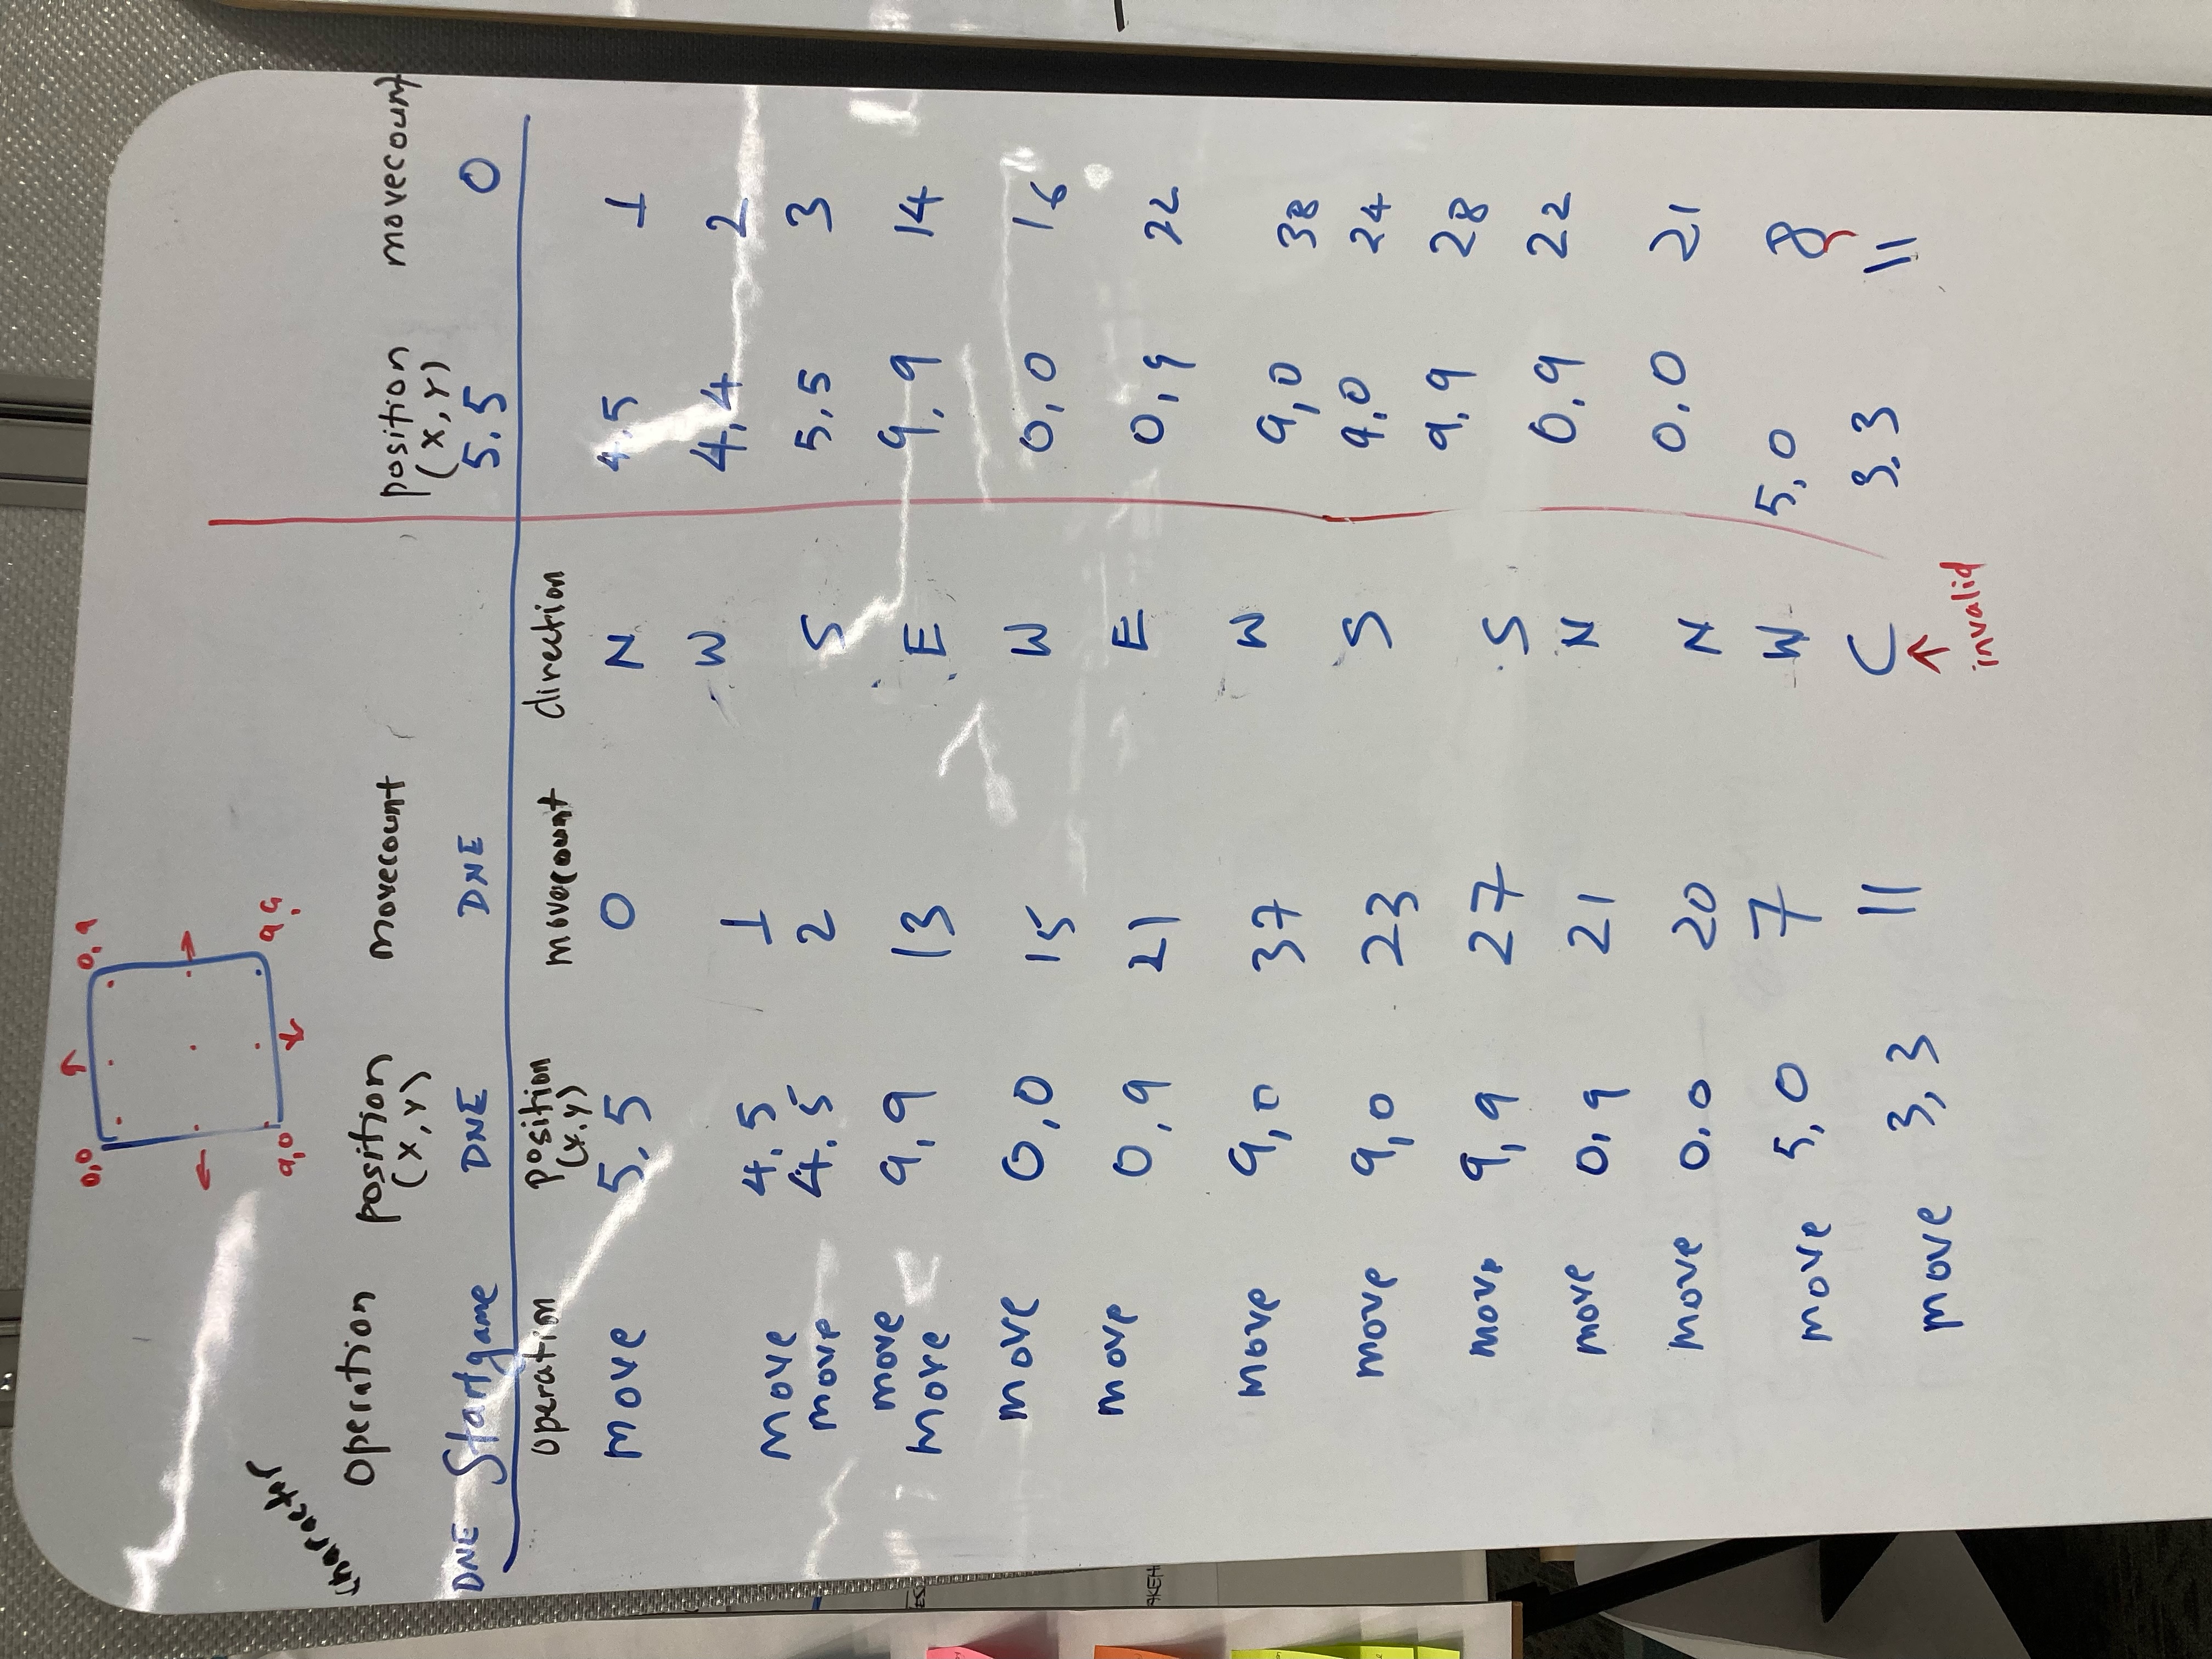 0,0 0,9
9,0 9,9
character
operation position movecount position movecount
(x,y) (x,y)
DNE Startgame DNE DNE 5,5 0
operation position movecount direction
(x,y)
move 5,5 0 N 4,5 1
move 4,5 1 W 4,4 2
move 4,5 2 S 5,5 3
move
move 9,9 13 E 9,9 14
move 0,0 15 W 0,0 16
move 0,9 21 E 0,9 22
move 9,0 37 W 9,0 38
move 9,0 23 S 9,0 24
move 9,9 27 S 9,9 28
move 0,9 21 N 0,9 22
move 0,0 20 N 0,0 21
move 5,0 7 W 5,0 8
move 3,3 11 C 3,3 11
invalid